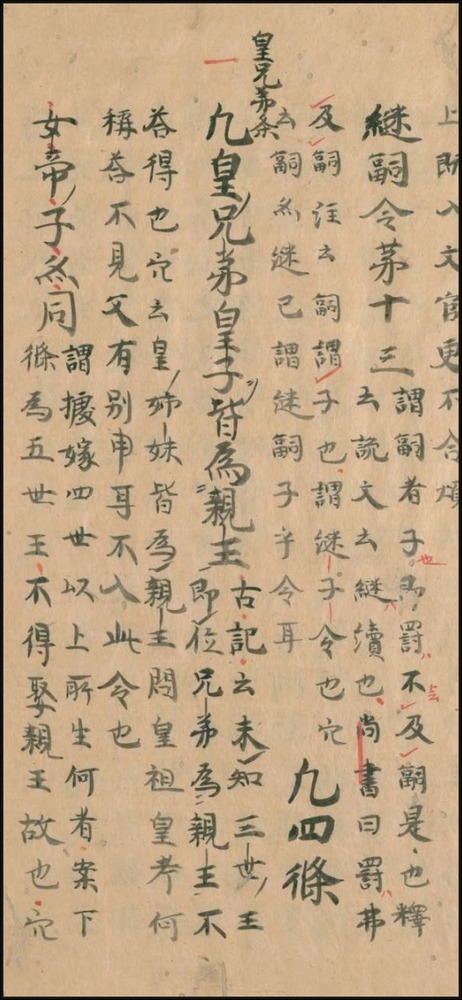 上即入文官更不合煩
継嗣令苐十三
謂嗣者子也罰不及嗣是也釋
云説文云継續也尚書曰罰弗
及嗣注云嗣謂子也謂継子令也穴
云嗣爲継已謂継嗣子乎令耳
凡四條
皇兄弟条
凡皇兄弟皇子皆為親王
古記云未知三世王
即位兄弟為親王不
荅得也穴云皇姉妹皆為親王問皇祖皇考何
稱荅不見文有別申耳不入此令也
女帝子亦同
謂據嫁四世以上所生何者案下
條為五世王不得娶親王故也穴